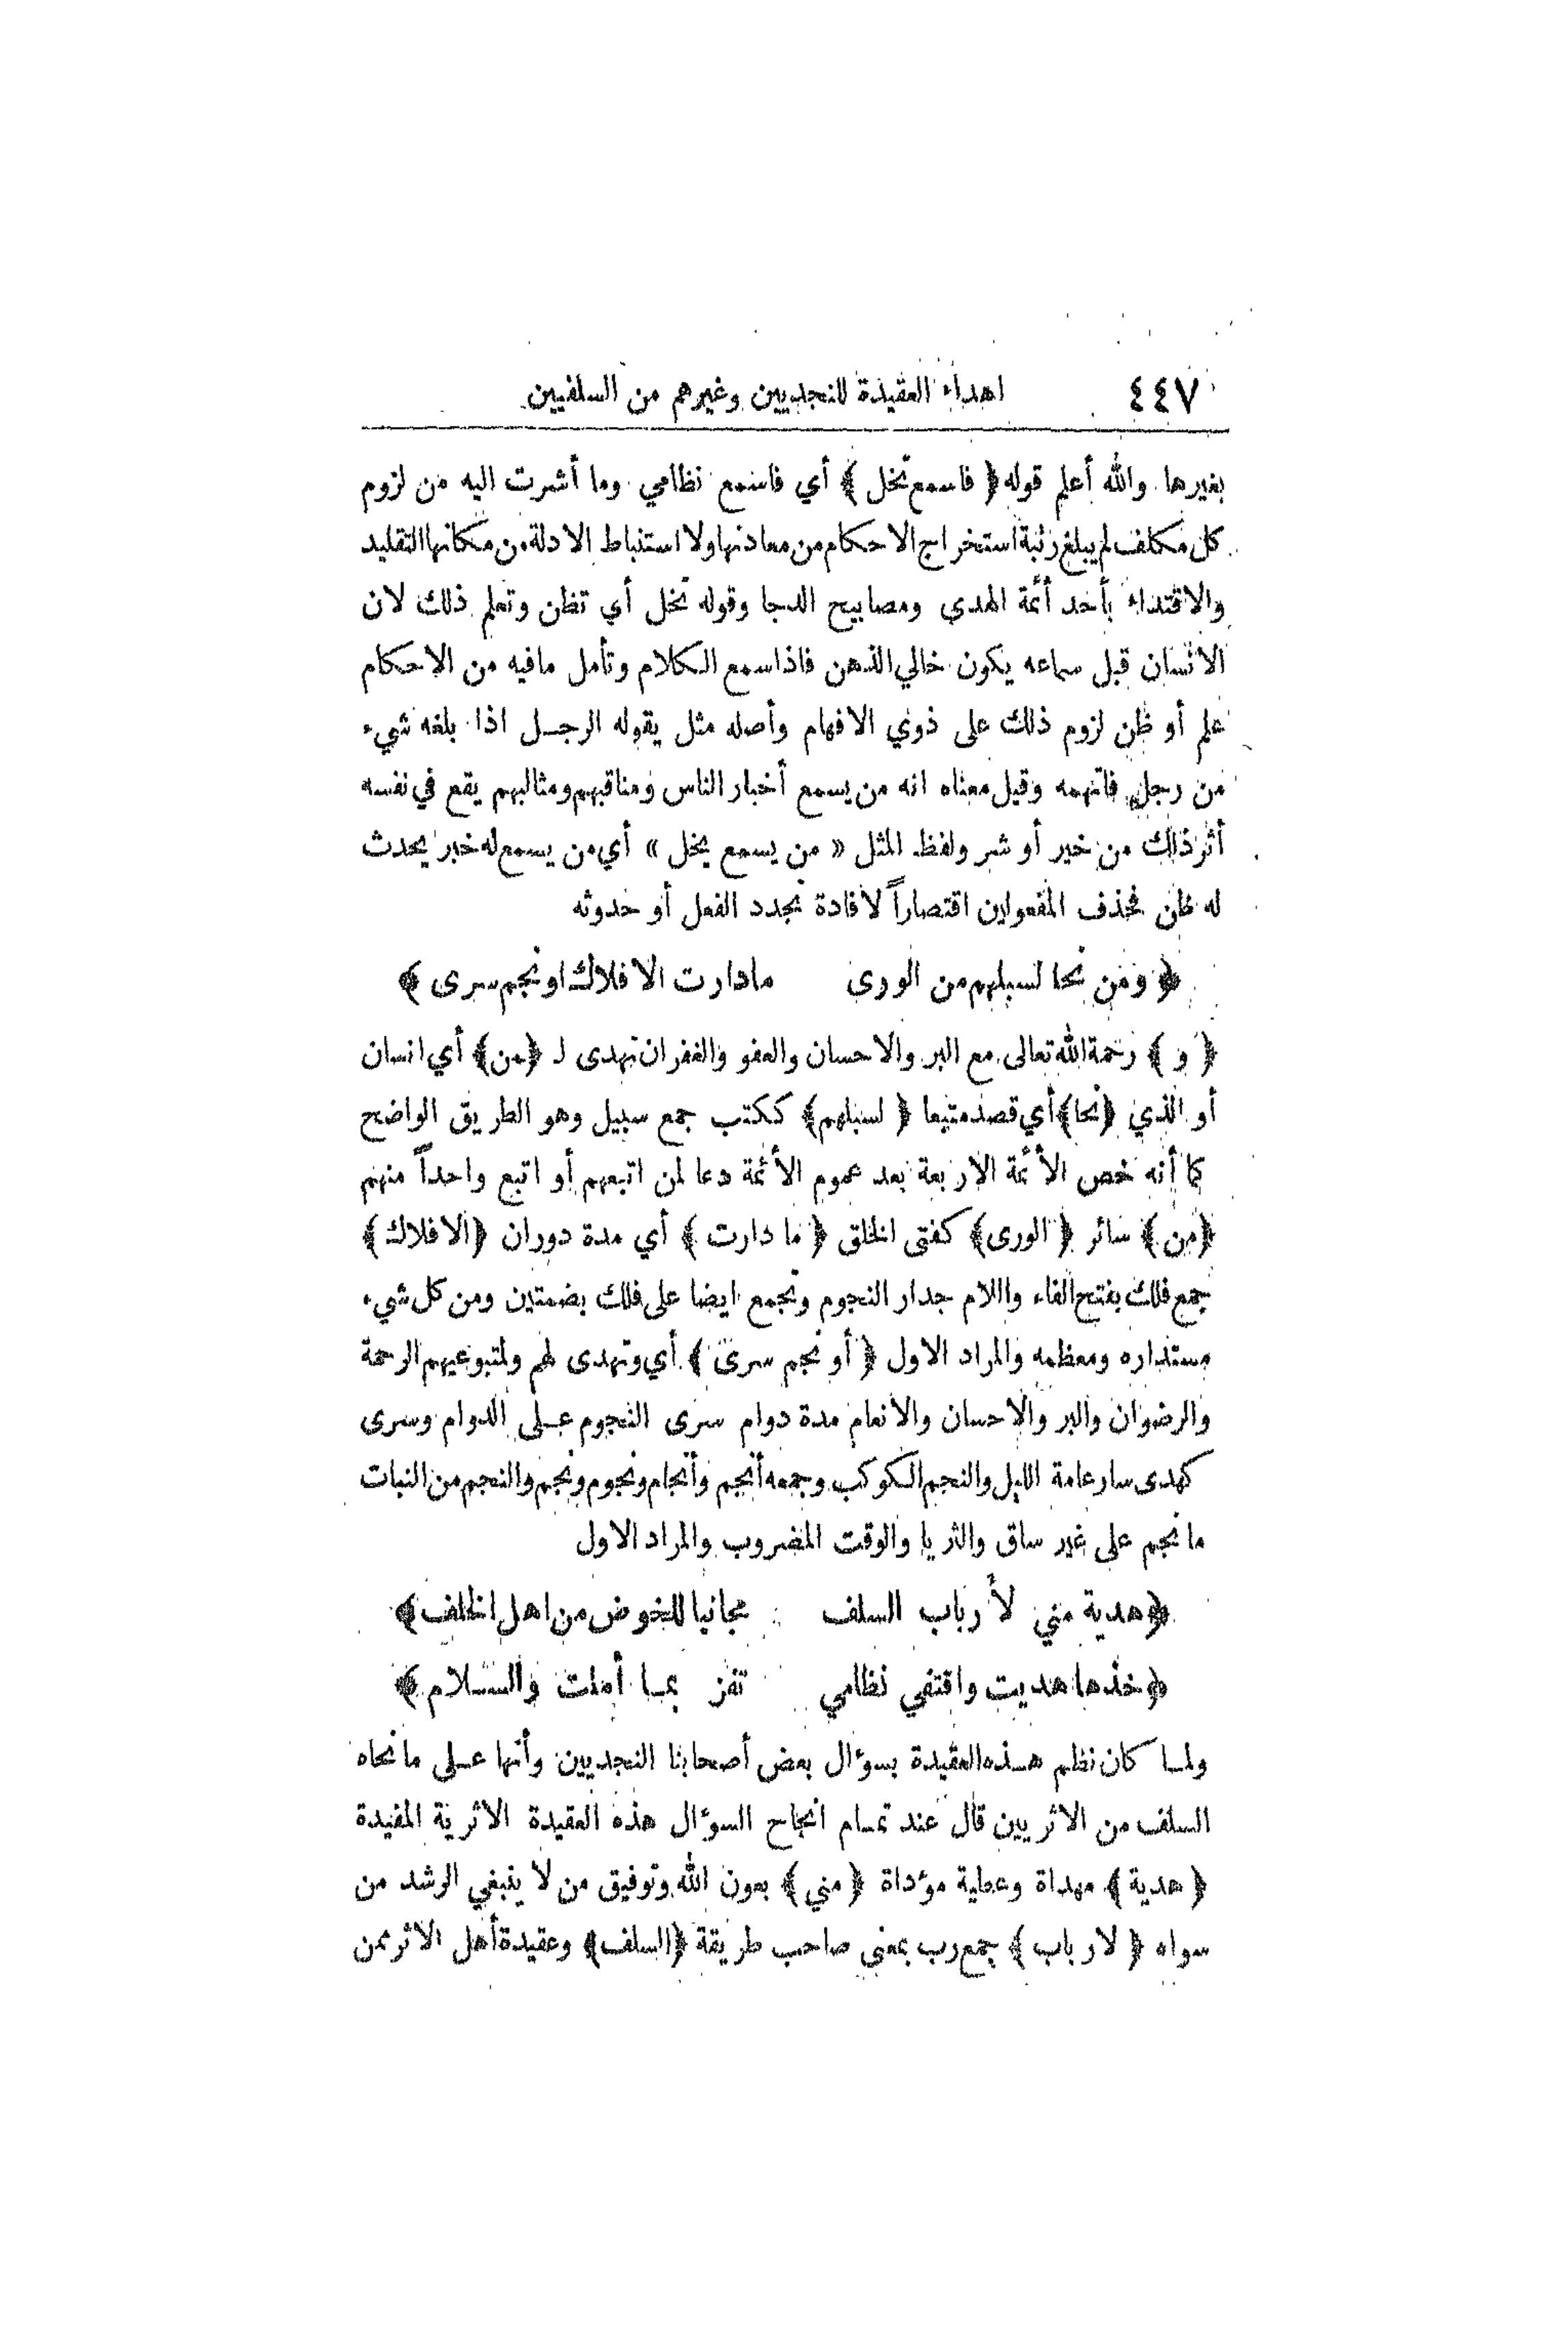 ٤٤٧ اهداء العقيدة للنجديين وغيرهم من السلفيين
بغيرها والله أعلم قوله ﴿ فاسمع تخل ﴾ أي فاسمع نظامي وما أشرت اليه من لزوم
كل مكلف لم يبلغ رتبة استخراج الاحكام من معادنها ولا استنباط الادلة من مكانها التقليد
والاقتداء بأحد أئمة الهدى ومصابيح الدجا وقوله تخل أي تظن وتعلم ذلك لان
الانسان قبل سماعه يكون خالي الذهن فاذا سمع الكلام وتأمل مافيه من الاحكام
علم أو ظن لزوم ذلك على ذوي الافهام وأصله مثل يقوله الرجل اذا بلغه شيء
من رجل فاتهمه وقيل معناه انه من يسمع أخبار الناس ومناقبهم ومثالبهم يقع في نفسه
أثر ذلك من خير أو شر ولفظ المثل « من يسمع يخل » أي من يسمع له خبر يحدث
له ظن فحذف المفعولين اقتصاراً لافادة تجدد الفعل أو حدوثه
﴿ ومن نحا لسبلهم من الورى مادارت الافلاك او نجم سرى ﴾
﴿ و ﴾ رحمة الله تعالى مع البر والاحسان والعفو والغفران تهدى لـ ﴿من﴾ أي انسان
أو الذي ﴿نحا﴾ أي قصد متبعا ﴿ لسبلهم﴾ ككتب جمع سبيل وهو الطريق الواضح
كما أنه خص الأئمة الاربعة بعد عموم الأئمة دعا لمن اتبعهم أو اتبع واحداً منهم
﴿من﴾ سائر ﴿ الورى﴾ كفتى الخلق ﴿ ما دارت ﴾ أي مدة دوران ﴿الافلاك﴾
جمع فلك بفتح الفاء واللام جدار النجوم وتجمع ايضا على فلك بضمتين ومن كل شيء
مستداره ومعظمه والمراد الاول ﴿ أو نجم سرى ﴾ أي وتهدى لهم ولمتبوعيهم الرحمة
والرضوان والبر والاحسان والانعام مدة دوام سرى النجوم على الدوام وسرى
كهدى سار عامة الليل والنجم الكوكب وجمعه أنجم وأنجام ونجوم ونجم والنجم من النبات
ما نجم على غير ساق والثريا والوقت المضروب والمراد الاول
﴿هدية مني لأرباب السلف مجانبا للخوض من اهل الخلف﴾
﴿خذها هديت واقتفي نظامي تفز بما أملت والسلام﴾
ولما كان نظم هذه العقيدة بسؤال بعض أصحابنا النجديين وأنها على مانحاه
السلف من الاثريين قال عند تمام انجاح السؤال هذه العقيدة الاثرية المفيدة
﴿ هدية ﴾ مهداة وعطية مؤداة ﴿ مني ﴾ بعون الله وتوفيق من لا ينبغي الرشد من
سواه ﴿ لارباب ﴾ جمع رب بمعنى صاحب طريقة ﴿السلف﴾ وعقيدة أهل الاثر ممن